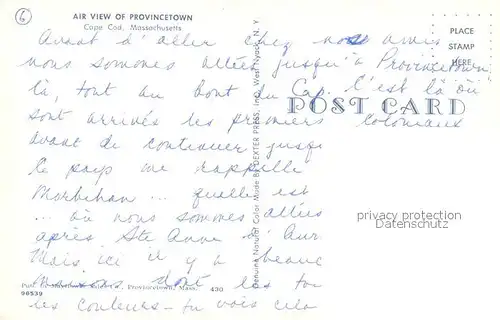 6
AIR VIEW OF PROVINCETOWN
Cape Cod, Massachusetts
PLACE
STAMP
HERE
Avant d'aller chez nos amis
nous sommes allés jusqu'à Provincetown
là, tout au bout du Cap. C'est là où
POST CARD
sont arrivés les premiers Coloniaux
Avant de continuer jusqu
le pays me rappelle
Morbihan ... quelle est
... où nous sommes allés
après Ste Anne d'Aur
Mais ici il y a beauc
dont les to
les couleurs - tu vois cela
Genuine Natural Color Made By DEXTER PRESS, Inc., West Nyack, N. Y.
privacy protection
Datenschutz
Provincetown, Mass. 430
98539